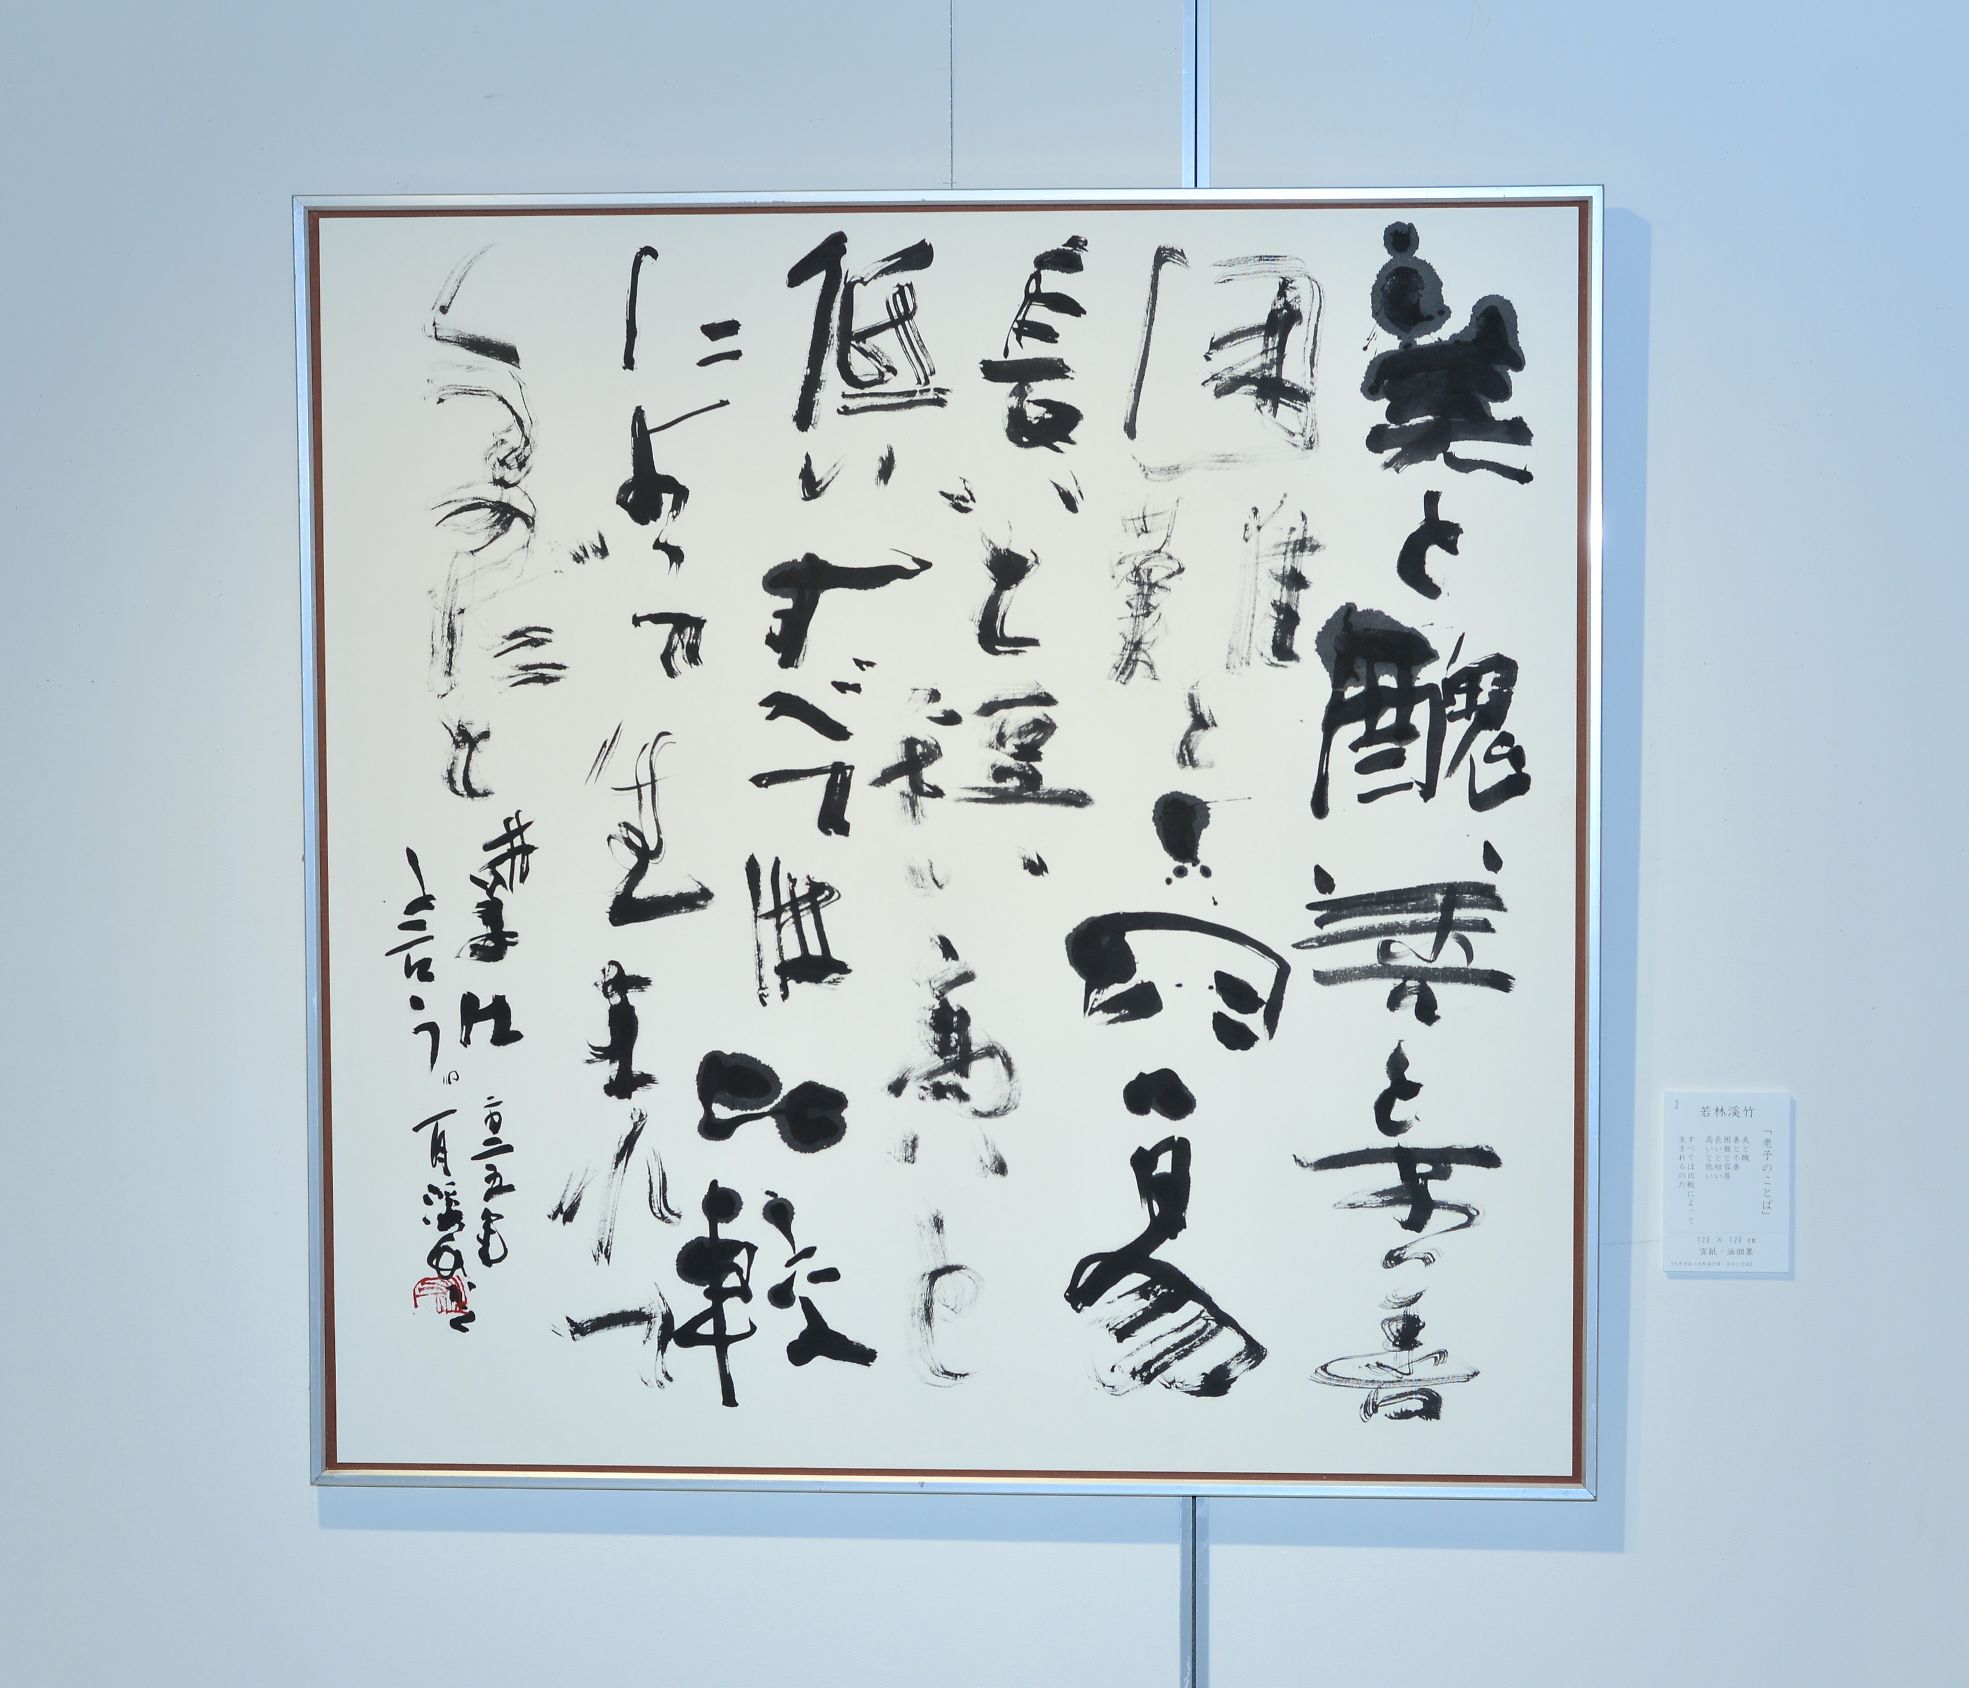 美と醜善と不善
困難と容易
長いと短い
高いと
低いすべては比較
によって生まれて
くるのだと
言う。
二〇二五年
溪竹
2
若林溪竹
「老子のことば」
美と醜
善と不善
困難と容易
長いと短い
高いと低い
すべては比較によって
生まれるのだ
120 × 120 cm
宣紙・油烟墨